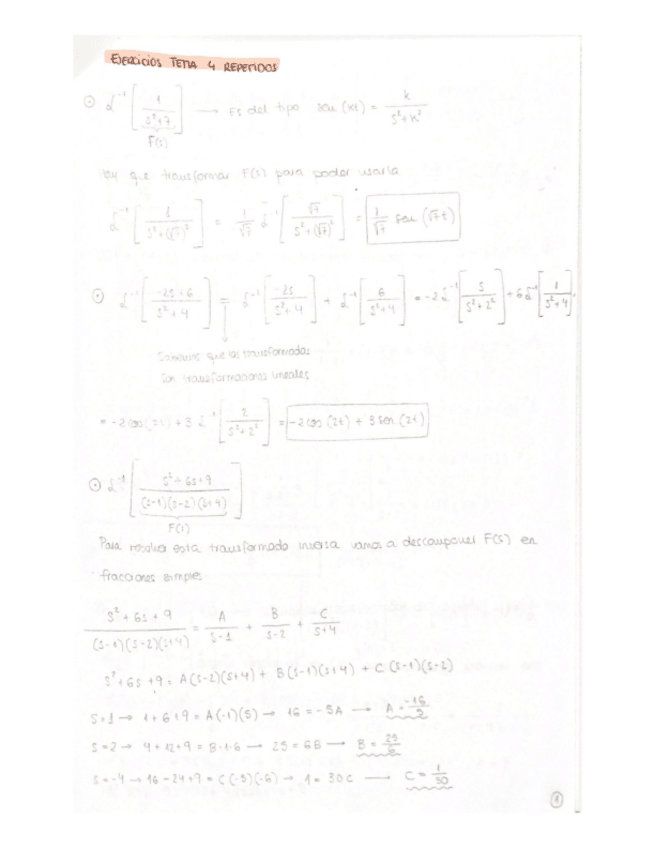 EJERCICIOS TEMA 4 REPETIDOS
⊙ L⁻¹[1/(s²+7)] → Es del tipo sen(kt) = k/(s²+k²)
F(s)
Hay que transformar F(s) para poder usarla
L⁻¹[1/(s²+(√7)²)] = 1/√7 L⁻¹[√7/(s²+(√7)²)] = 1/√7 sen(√7t)
⊙ L⁻¹[(-2s+6)/(s²+4)] = L⁻¹[-2s/(s²+4)] + L⁻¹[6/(s²+4)] = -2L⁻¹[s/(s²+2²)] + 6L⁻¹[1/(s²+4)] =
Sabemos que las transformadas
son transformaciones lineales
= -2cos(2t) + 3L⁻¹[2/(s²+2²)] = -2cos(2t) + 3sen(2t)
⊙ L⁻¹[(s²+6s+9)/((s-1)(s-2)(s+4))]
F(s)
Para resolver esta transformada inversa vamos a descomponer F(s) en
fracciones simples
(s²+6s+9)/((s-1)(s-2)(s+4)) = A/(s-1) + B/(s-2) + C/(s+4)
s²+6s+9 = A(s-2)(s+4) + B(s-1)(s+4) + C(s-1)(s-2)
s=1 → 1+6+9 = A(-1)(5) → 16 = -5A → A = -16/5
s=2 → 4+12+9 = B·1·6 → 25 = 6B → B = 25/6
s=-4 → 16-24+9 = C(-5)(-6) → 1 = 30C → C = 1/30
1